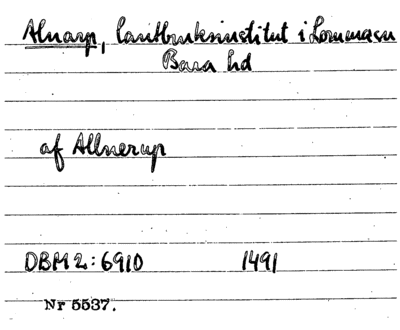 Alnarp, lantbruksinstitut i Lomma sn
Bara hd
af Allnerup
DBM 2:6910 1491
Nr 5537.